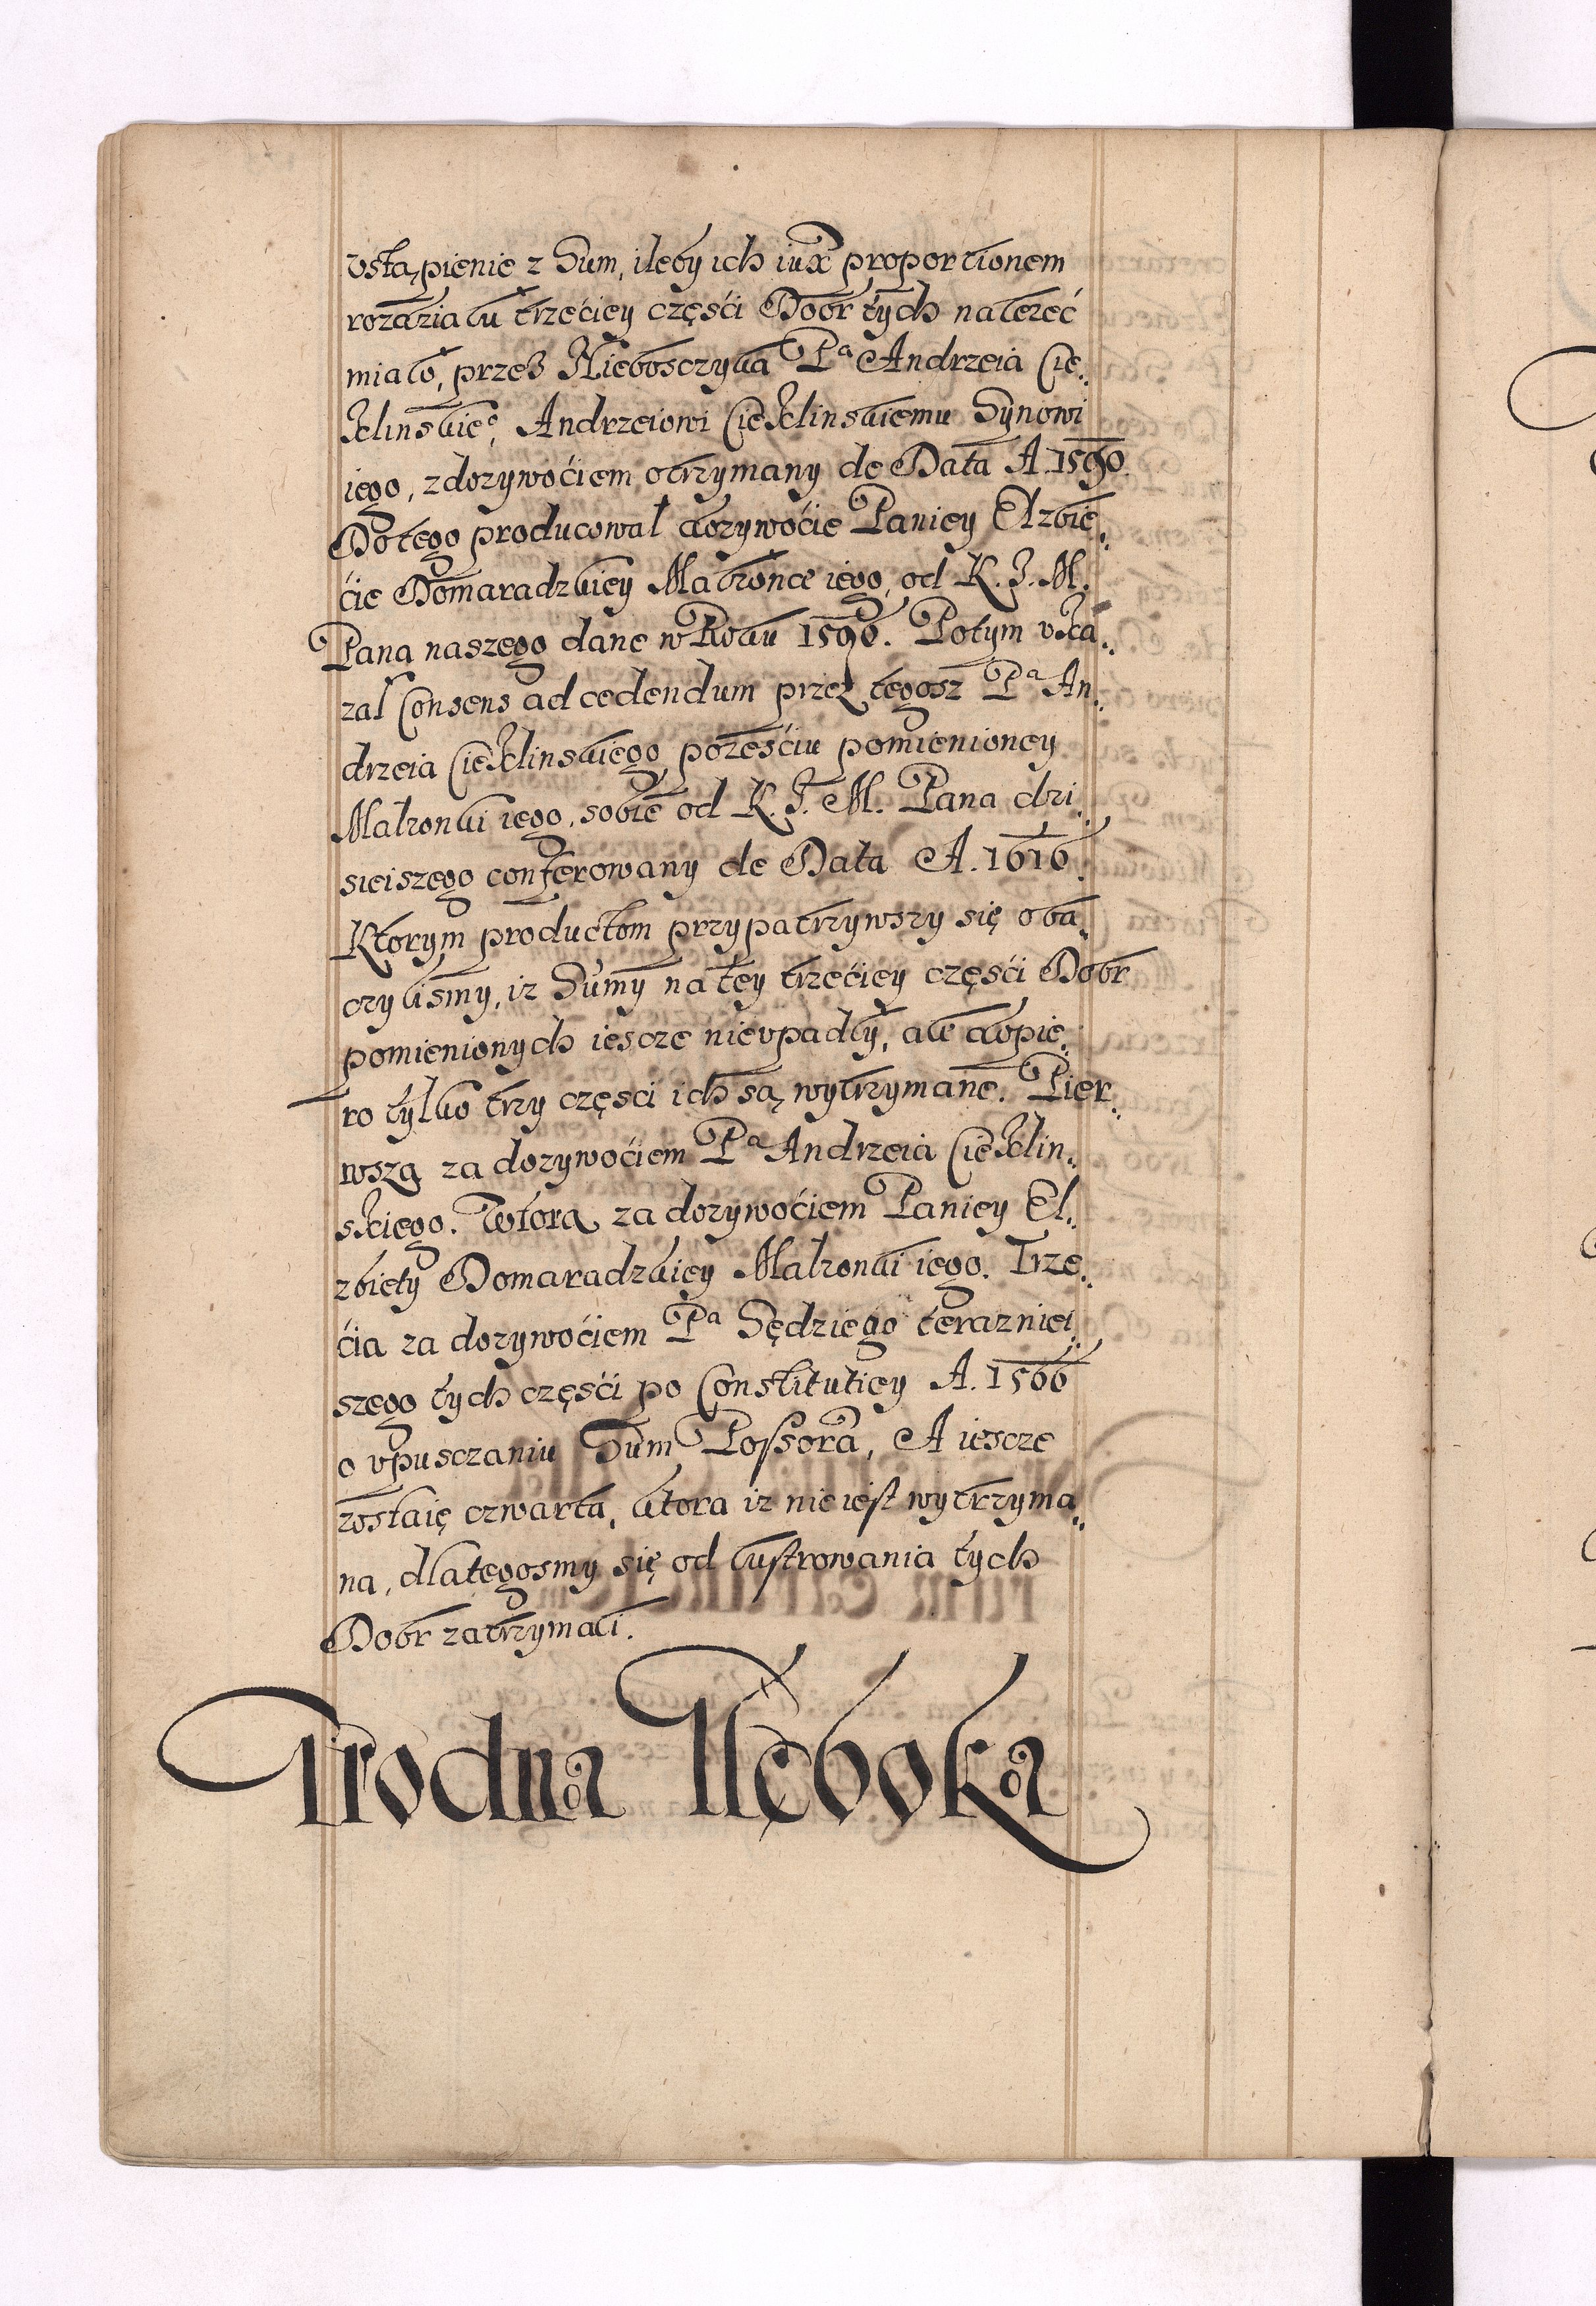 vstąpienie z Sum, ileby ich iuxᵃ proportionem
rozdziału trzećiey częśći Dobr tych należeć
miało, przez Nieboszczyka Pᵃ Andrzeia Cie„
klinskieᵒ, Andrzeiowi Cieklinskiemu Synowi
iego, z dozywoćiem otrzymany de Data A. 1590.
Do tego producował dozywoćie Paniey Elzbie„
ćie Domaradzkiey Małzonce iego, od K. J. M.
Pana naszego dane w Roku 1596. Potym vka„
zał Consens ad cedendum przez tegosz Pᵃ An„
drzeia Cieklinskiego po ześćiu pomienioney
Malzonki iego, sobie od K. J. M. Pana dzi„
sieiszego conferowany de Data A. 1616.
Ktorym productom przypatrzywszy się oba„
czylismy, iz Sumy na tey trzećiey częśći Dobr
pomienionych iescze nie vpadły, ale dopie„
ro tylko trzy częsci ich są wytrzymane. Pier„
wszą za dozywoćiem Pᵃ Andrzeia Cieklin„
skiego. Wtora za dozywoćiem Paniey El„
zbiety Domaradzkiey Malzonki iego. Trze„
ćia za dozywoćiem Pᵃ Sędziego teraznieı„
szego tych częśći po Constitutiey A. 1566
o vpusczaniu Sum Possora, A iescze
zostaię czwarta, ktora iz nie iest wytrzyma„
na, dlategosmy się od lustrowania tych
Dobr zatrzymali.
Trodna Nęboka